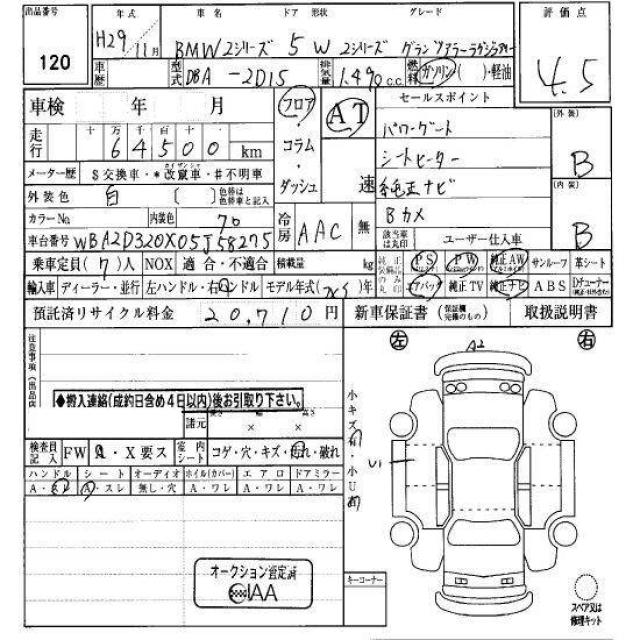 出品番号 年式 車名 ドア 形状 グレード 評価点
120 H29 11月 BMW 2シリーズ 5 W 2シリーズ グランツアラーラグジュアリー 4.5
車歴 型式 DBA-2D15 排気量 1.490 c.c. 燃料 ガソリン( )・軽油
車検 年 月 フロア・コラム・ダッシュ AT 速 セールスポイント
走行 十 万 千 百 十 一
64500 km
パワーゲート [外装]
シートヒーター B
メーター歴 $交換車・*改竄車・#不明車
純正ナビ [内装]
外装色 白 ( ) 色替は色替車と記入
Bカメ B
カラーNo 内装色 70 冷房 AAC 無
該当車は丸印 ユーザー仕入車
車台番号 WBA2D320X05J58275
乗車定員(7)人 NOX 適合・不適合 積載量 kg
純正装備品のみ丸印 PS PW 純正AW サンルーフ 革シート
エアバック 純正TV 純正ナビ ABS Dチューナー
輸入車 ディーラー・並行 左ハンドル・右ハンドル モデル年式( )
預託済リサイクル料金 20,710円 新車保証書 (保証欄完備のもの) 取扱説明書
注意事項
左 A2 右
◆搬入連絡(成約日含め4日以内)後お引取り下さい。
諸元 長さ × 幅 × 高さ
小キズ有・小U有
U1
検査員記入 FW A・X要ス 室内シート コゲ・穴・キズ・汚れ・破れ
ハンドル シート オーディオ ホイル(カバー) エアロ ドアミラー
A・スレ A・スレ 無し・穴 A・ワレ A・ワレ A・ワレ
オークション査定済
IAA
キーコーナー
スペア又は
修理キット